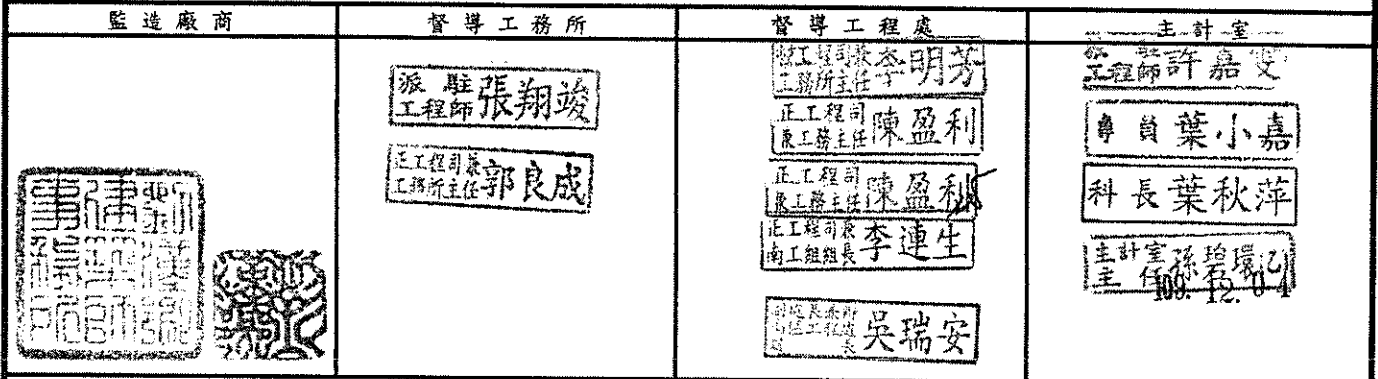 監造廠商
督導工務所
派駐
工程師 張翔竣
正工程司兼
工務所主任 郭良成
督導工程處
工務所主任 李明芳
正工程司
兼工務主任 陳盈利
正工程司
兼工務主任 陳盈利
正工程司兼
南工組組長 李連生
吳瑞安
主計室
工程師 許嘉雯
專員 葉小嘉
科長 葉秋萍
主計室
主任 孫碧環
109. 12. 04